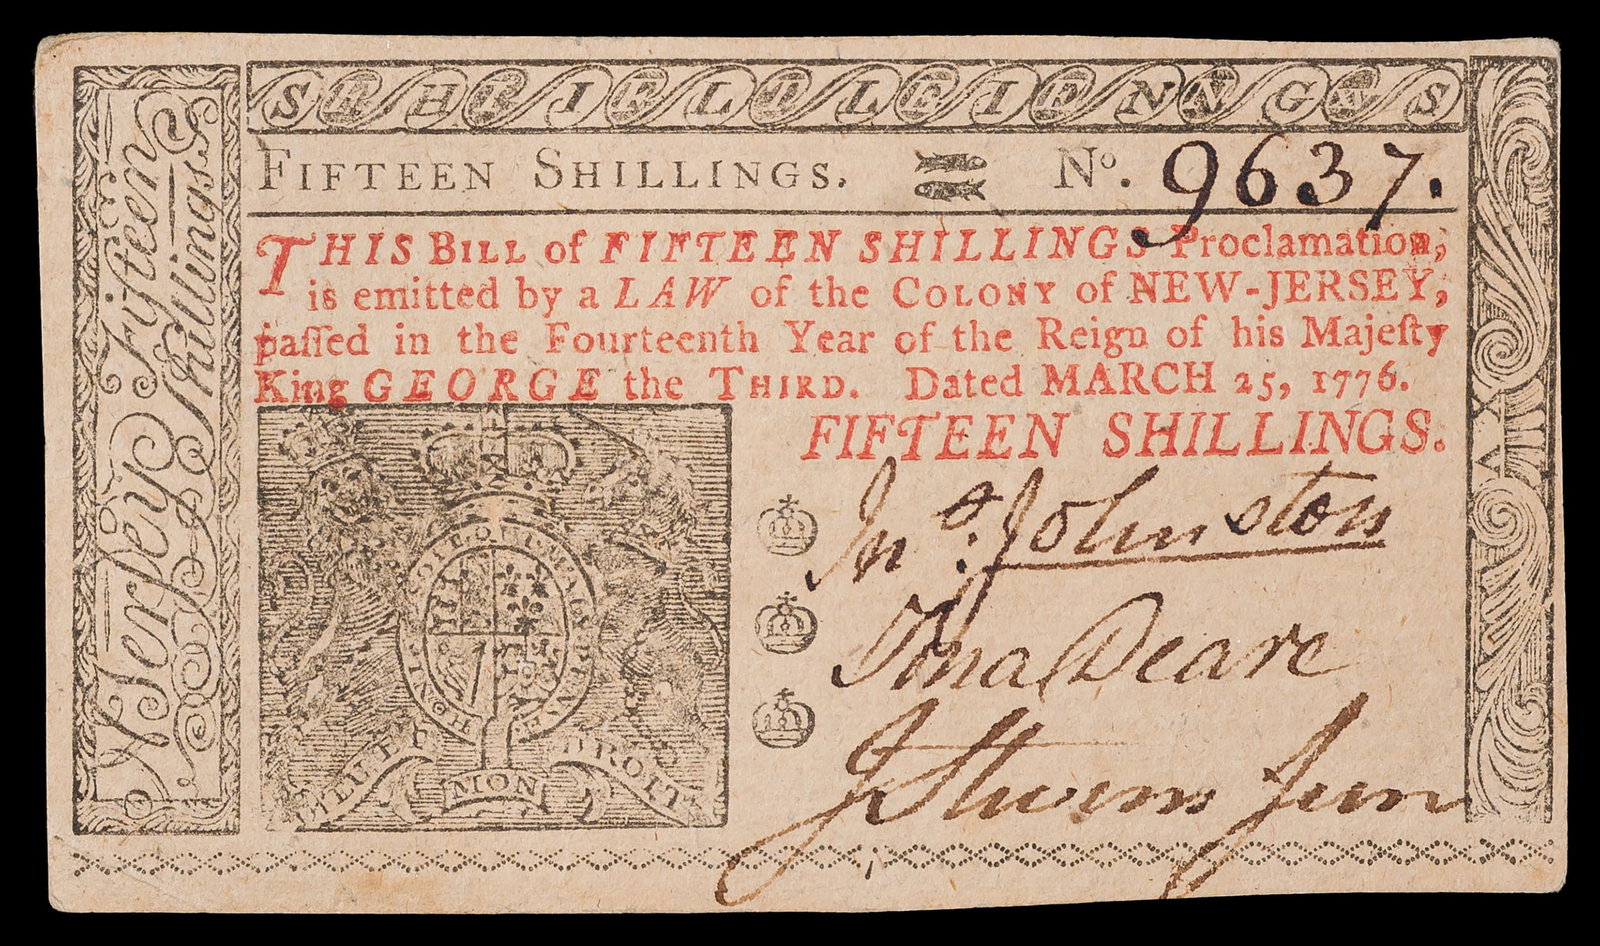 SFHFIFLTLEIENNGXS
FIFTEEN SHILLINGS. No. 9637.
THIS BILL of FIFTEEN SHILLINGS Proclamation,
is emitted by a LAW of the COLONY of NEW-JERSEY,
paſſed in the Fourteenth Year of the Reign of his Majeſty
King GEORGE the THIRD. Dated MARCH 25, 1776.
FIFTEEN SHILLINGS.
Jno. Johnston
Jona Deare
J Stevens Jun
N Jerſey Fifteen
Shillings
HONI SOIT QUI MAL Y PENSE
DIEU ET MON DROIT
XV